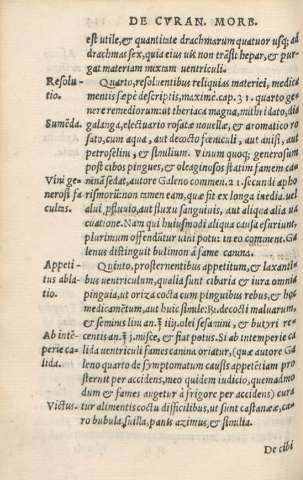 DE CVRAN. MORB.
est utile, & quantitate drachmarum quatuor usq; ad
drachmas sex, quia eius uis non trãsit hepar, & pur-
gat materiam mixtam uentriculi.
Resolu- Quarto, resoluentibus reliquias materiei, medica
tio. mentis sæpè descriptis, maximè. cap. 31. quarto ge-
nere remediorum: ut theriaca magna, mithridato, dia
Sumẽda. galanga, electuario rosatæ nouellæ, & aromatico ro
sato, cum aqua, aut decocto fœniculi, aut anisi, aut
petroselini, & similium. Vinum quoq; generosum
post cibos pingues, & oleaginosos statim famem ca-
Vini ge- ninã sedat, autore Galeno commen. 21. secundi apho
nerosi fa rismorũ: non tamen eam, quæ fit ex longa inedia. uel
cultas. alui, pfluuio, aut fluxu sanguinis, aut aliqua alia ua
cuatione. Nam qui huiusmodi aliqua causa esuriunt,
plurimum offendũtur uini potu: in eo comment. Ga
lenus distinguit bulimon à fame canina.
Appeti- Quinto, prosternentibus appetitum, & laxantiu
tus abla- bus uentriculum, qualia sunt cibaria & iura omnia
tio. pinguia, ut oriza cocta cum pinguibus rebus, & hoc
medicamẽtum, aut huic simile: ℞. decocti maluarum,
& seminis lini an. ℥ iiij. olei sesamini, & butyri re-
Ab intẽ- centis an. ℥ j. misce, & fiat potus. Si ab intemperie ca
perie ca- lida uentriculi fames canina oriatur, (quæ autore Ga
lida. leno quarto de symptomatum causis appetitiam pro
sternit per accidens, meo quidem iudicio, quemadmo
dum & fames augetur à frigore per accidens) cura
Victus. tur alimentis coctu difficilibus, ut sunt castaneæ, ca-
ro bubula, suilla, panis azimus, & similia.
De cibi